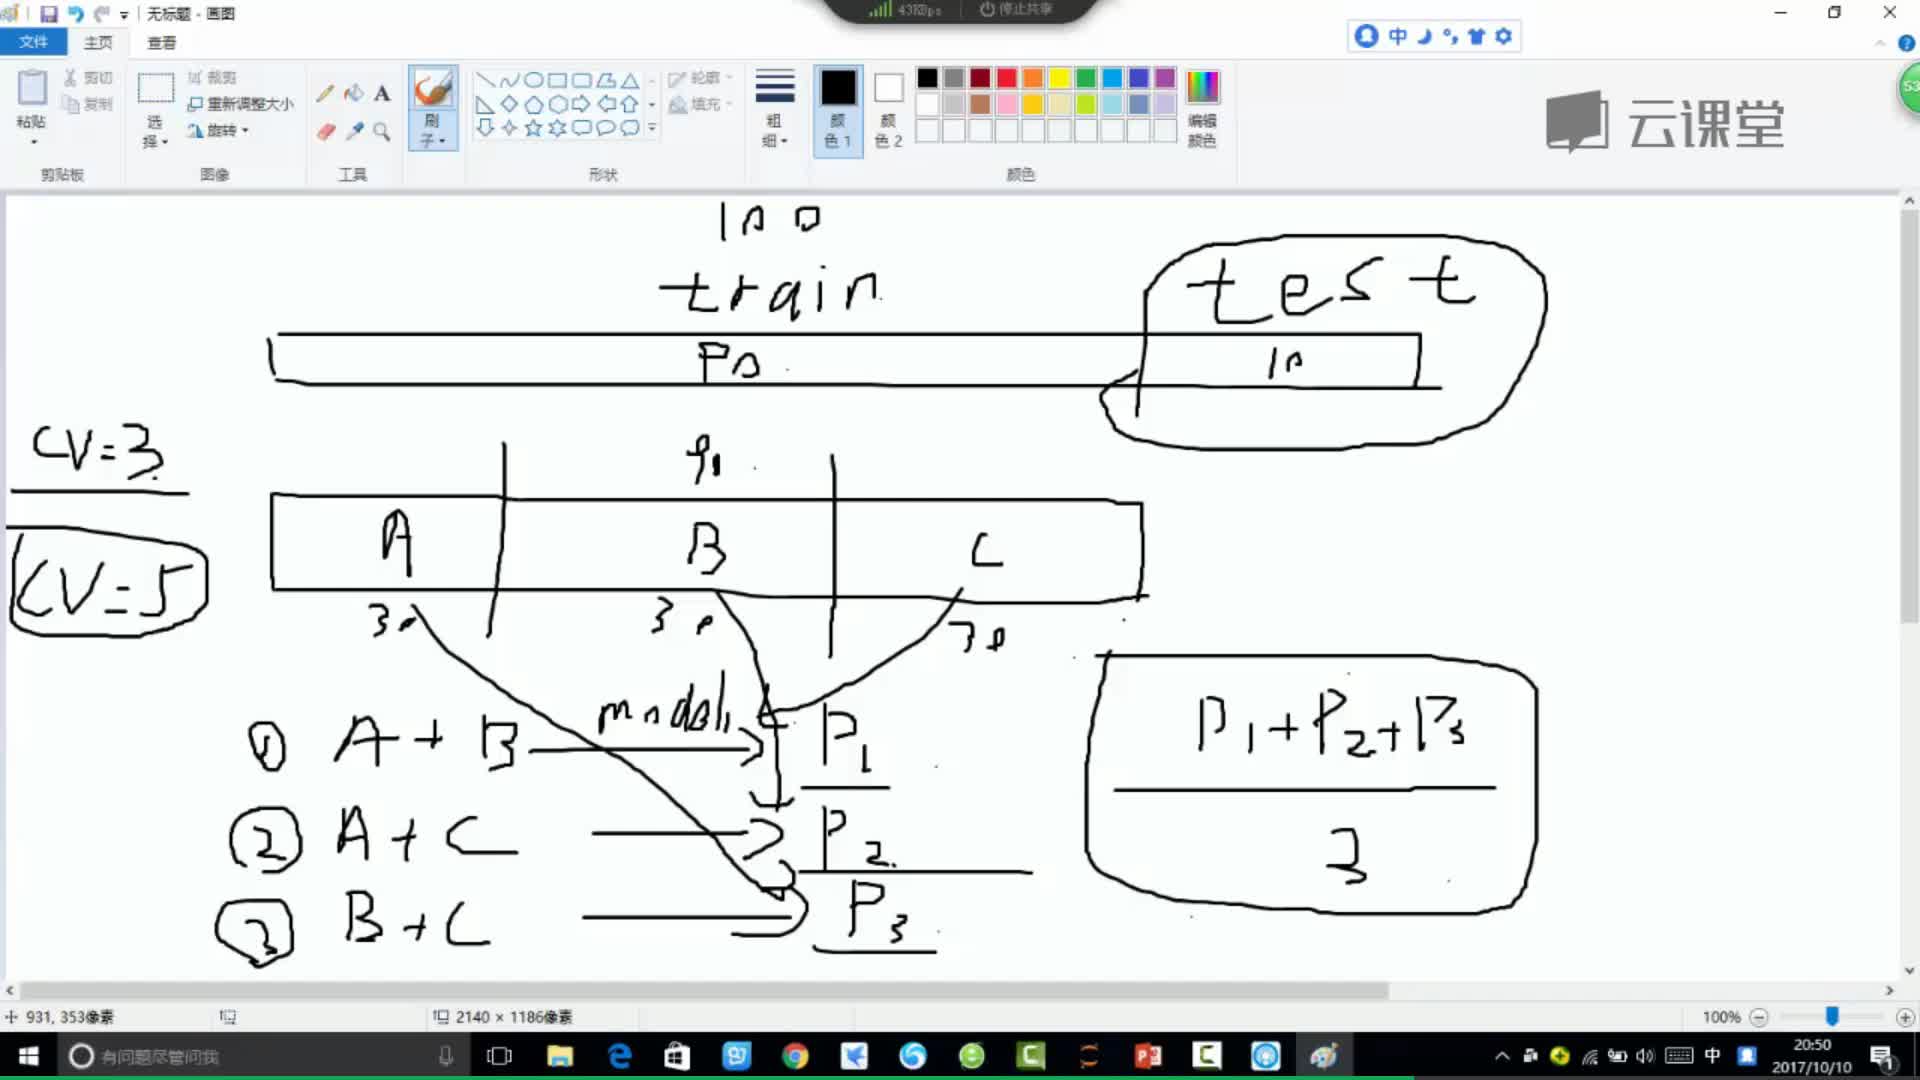 无标题 - 画图
43KBps
停止共享
文件 主页 查看
中
剪切
复制
粘贴
剪贴板
裁剪
重新调整大小
旋转
选择
图像
A
工具
刷子
轮廓
填充
形状
粗细
颜色 1
颜色 2
编辑颜色
颜色
53
云课堂
100
train
test
10
CV=3
90
A B C
CV=5
30 30 30
① A + B model P1
② A + C P2
③ B + C P3
P1+P2+P3
3
931, 353像素
2140 × 1186像素
100%
有问题尽管问我
中
20:50
2017/10/10
1